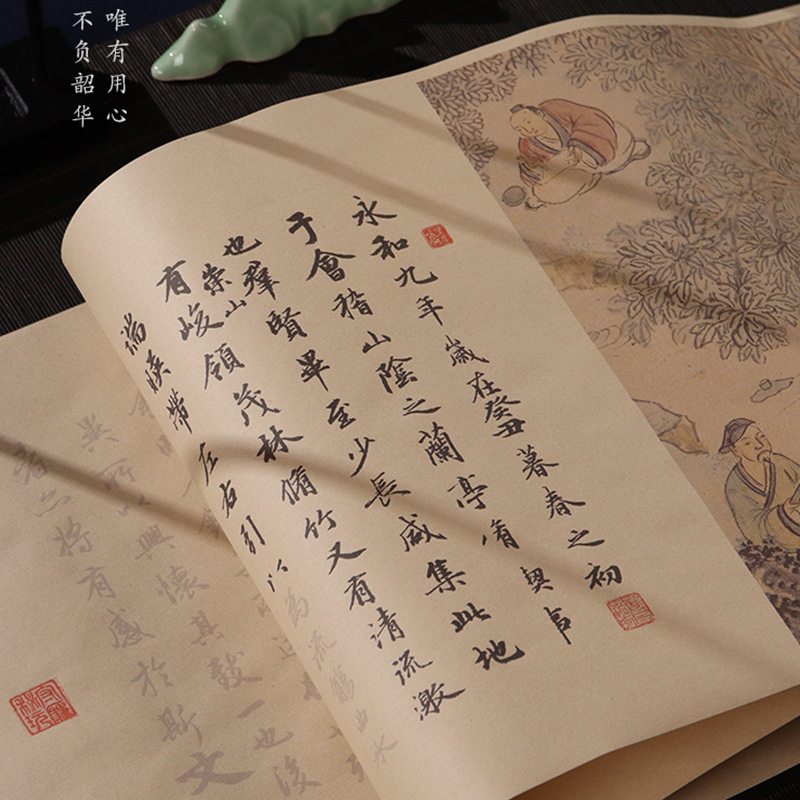 唯有用心
不负韶华
永和九年歲在癸丑暮春之初
于會稽山陰之蘭亭脩稧事
也羣賢畢至少長咸集此地
有崇山峻領茂林脩竹又有清流激
湍暎帶左右引以為流觴曲水
異所以興懷其致一也後
者亦將有感於斯文